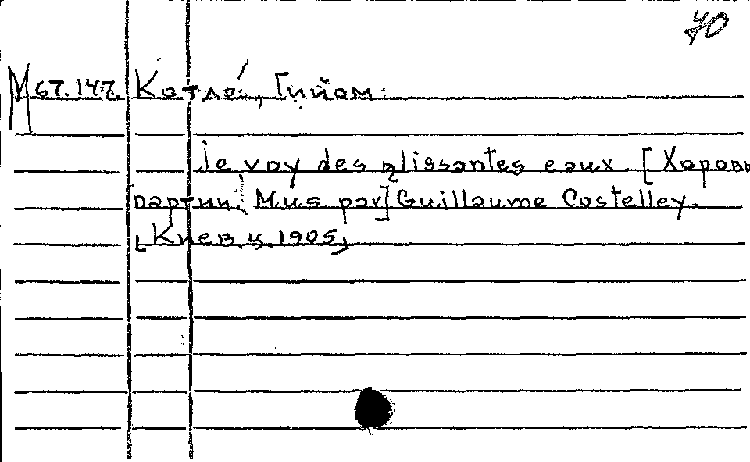 70
М 67.147. Котле, Гийом.
Je voy des glissantes eaux [Хоровы
партии. Mus par] Guillaume Costelley.
[Киев ц. 1905]